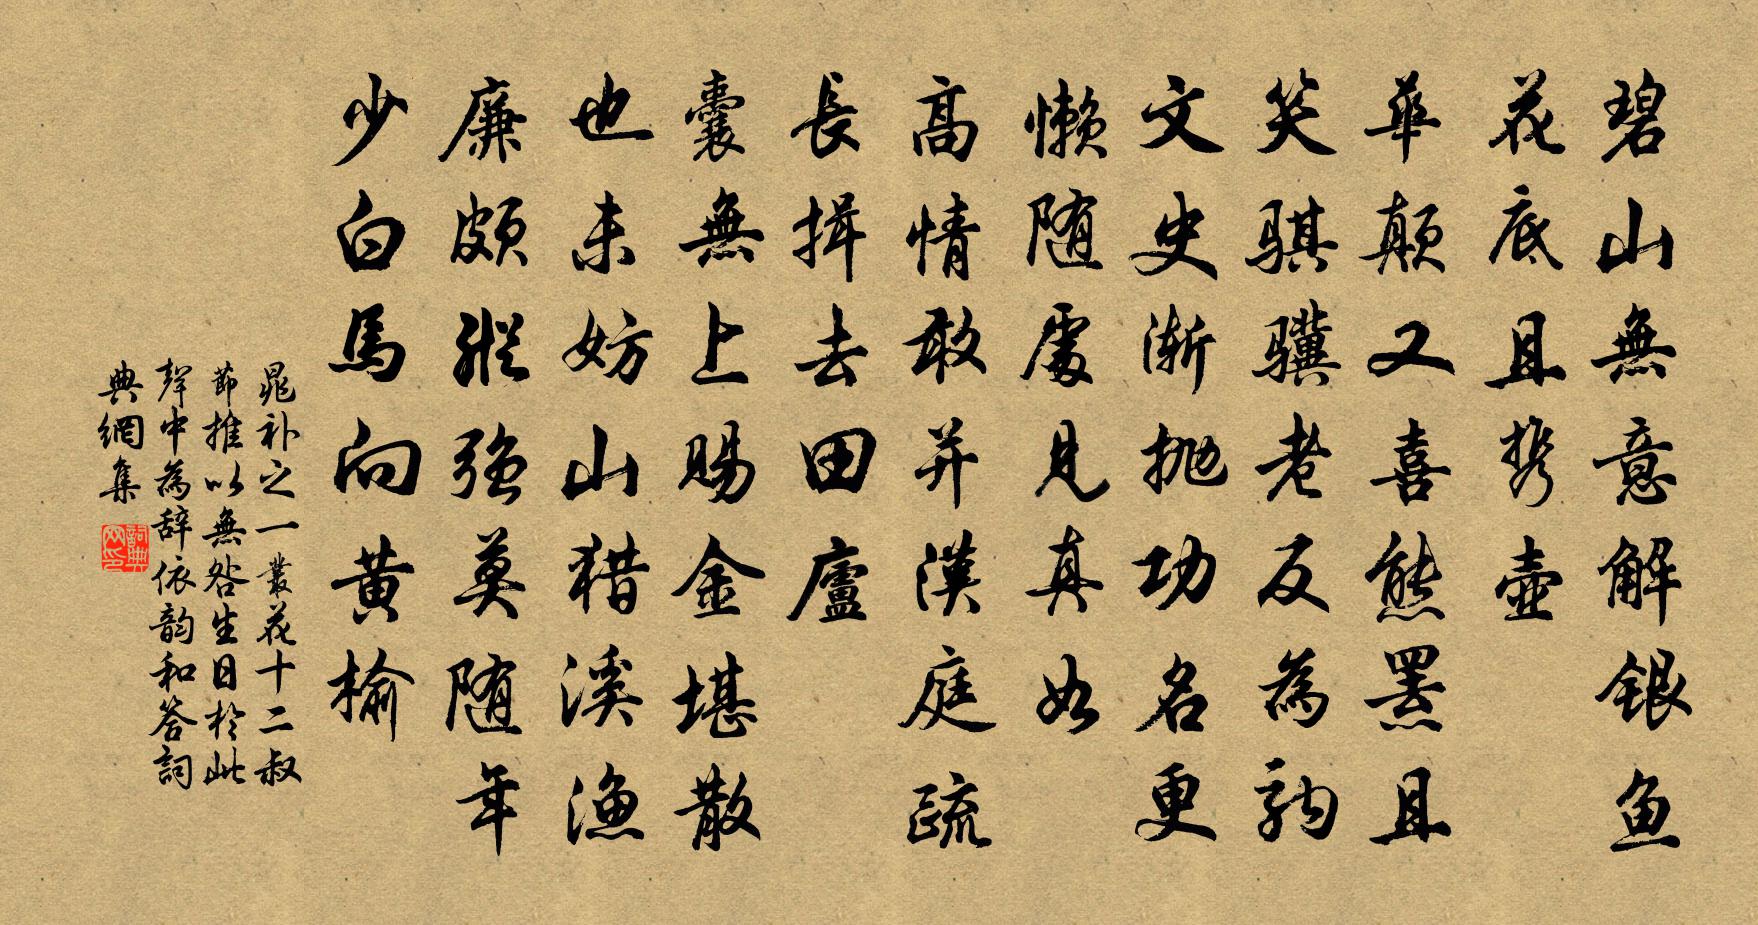 碧山無意解銀魚
花底且携壺
華顛又喜熊羆且
笑骐骥老反為駒
文史漸抛功名更
懒随處見真如
高情敢并漢庭疏
長揖去田廬
囊無上赐金堪散
也未妨山猎溪漁
廉颇縱强莫随年
少白馬向黄榆
晁补之一叢花十二叔
節推以無咎生日於此
聲中為辞依韵和答詞
典網集
詞典网印